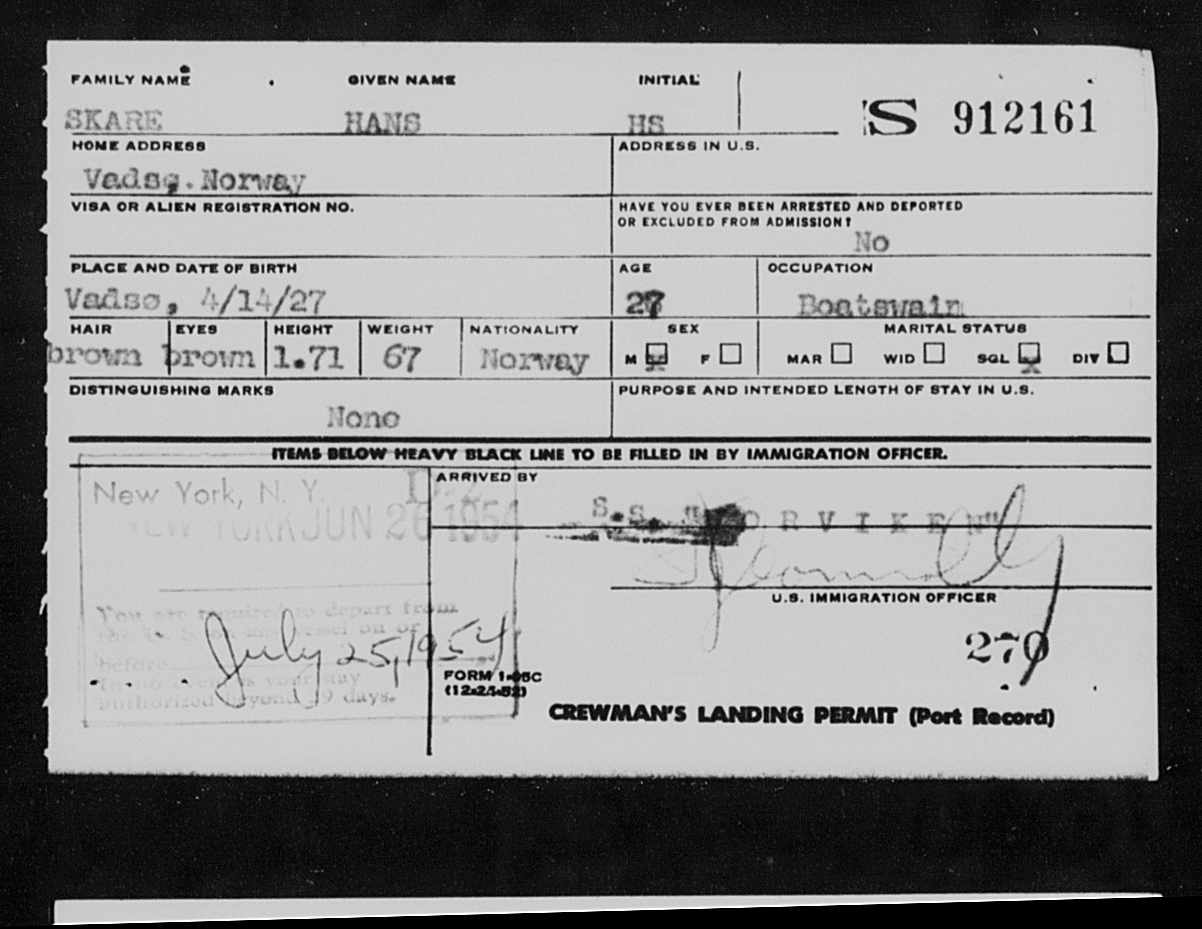 FAMILY NAME GIVEN NAME INITIAL
SKARE HANS HS S 912161
HOME ADDRESS ADDRESS IN U.S.
Vadsø. Norway
VISA OR ALIEN REGISTRATION NO. HAVE YOU EVER BEEN ARRESTED AND DEPORTED
OR EXCLUDED FROM ADMISSION?
No
PLACE AND DATE OF BIRTH AGE OCCUPATION
Vadsø, 4/14/27 27 Boatswain
HAIR EYES HEIGHT WEIGHT NATIONALITY SEX MARITAL STATUS
brown brown 1.71 67 Norway M x F MAR WID SGL x DIV
DISTINGUISHING MARKS PURPOSE AND INTENDED LENGTH OF STAY IN U.S.
None
ITEMS BELOW HEAVY BLACK LINE TO BE FILLED IN BY IMMIGRATION OFFICER.
ARRIVED BY
New York, N. Y.
S.S. "ORVIKEN"
NEW YORK JUN 26 1954
U.S. IMMIGRATION OFFICER
You are required to depart from
the U. S. on any vessel on or
before July 25, 1954
270
In no event is your stay
authorized beyond 29 days.
FORM I-95C
(12-24-52)
CREWMAN'S LANDING PERMIT (Port Record)